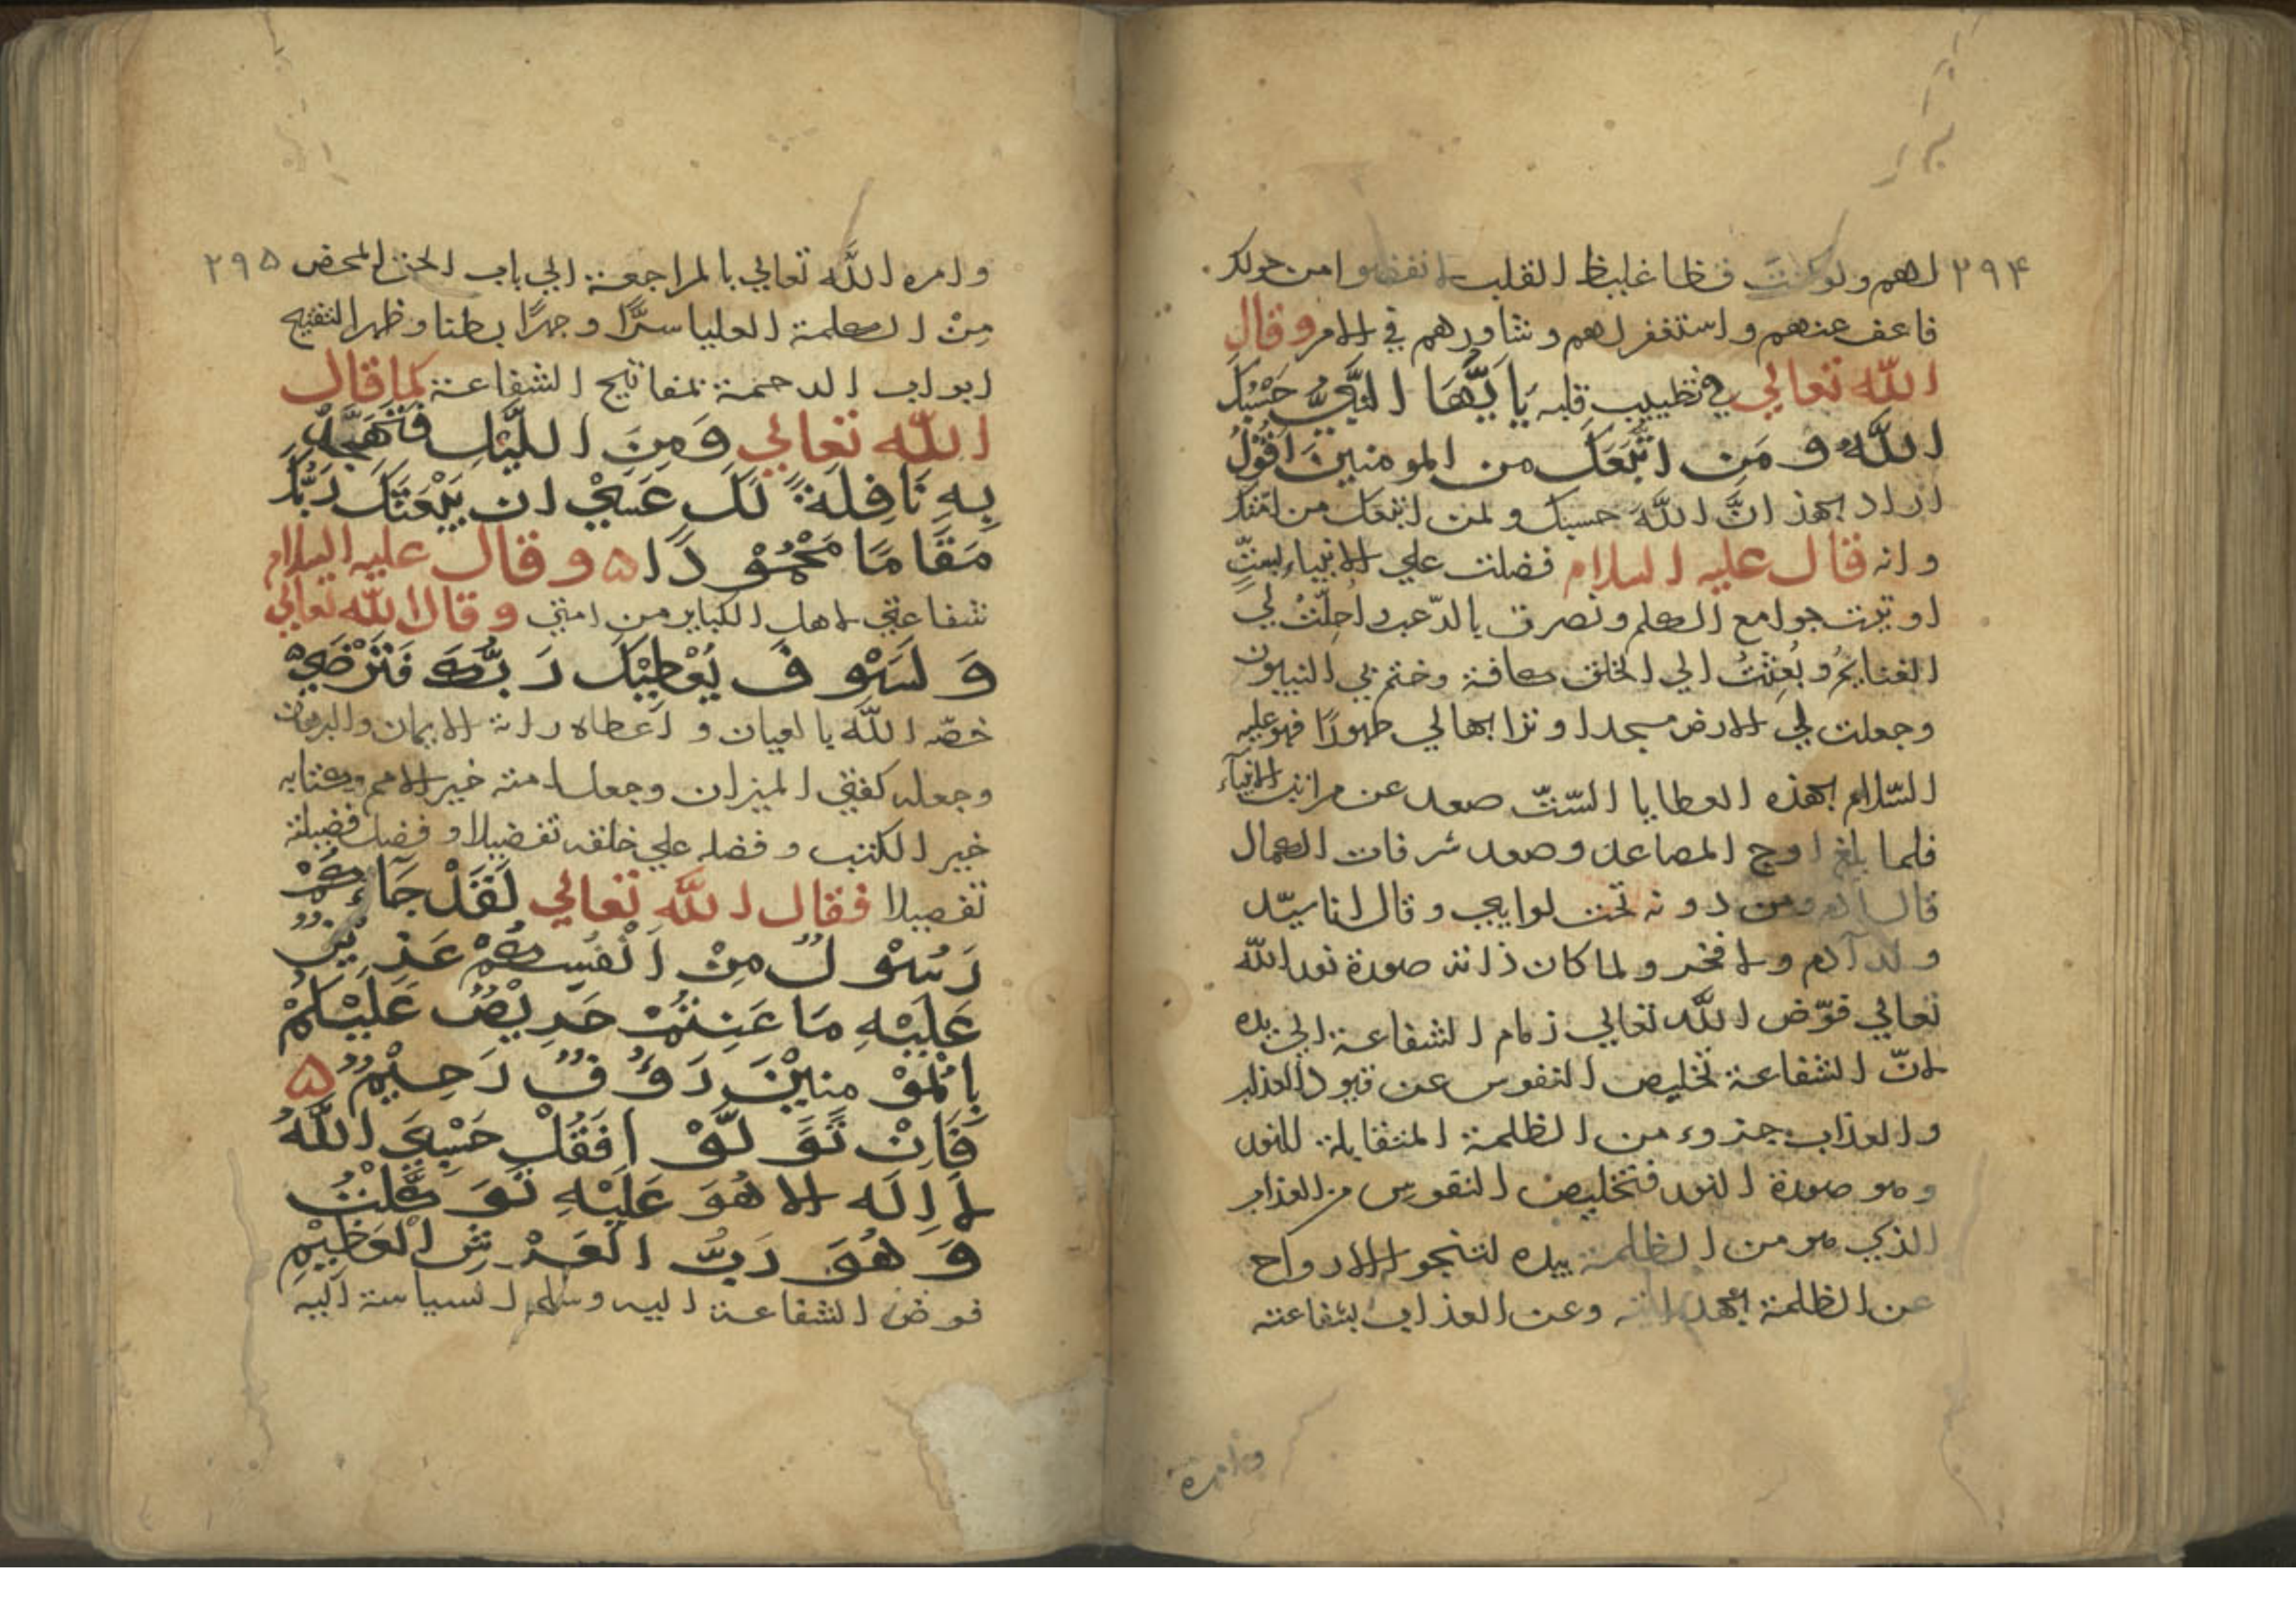 ۲۹۴
لهم ولو كنت فظا غليظ القلب لانفضوا من حولك
فاعف عنهم واستغفر لهم وشاورهم في الامر وقال
الله تعالي في تطييب قلبه يَا اَيُّهَا النَّبِيُّ حَسْبُكَ
اللَّهُ وَمَنِ اتَّبَعَكَ من المومنين اَقُوْلُ
اراد بهذ انَّ اللَّهَ حسبك ولمن اتبعك من امتك
وانه قال عليه السلام فضلت علي الانبياء بستٍّ
اوتيت جوامع الكلم ونصرت بالرّعب واُحِلّتْ لي
الغنايمُ وبُعِثْتُ الي الخلق كافة وختم بي النبيون
وجعلت لي الارض مسجدا وترابها لي طهورًا فهو عليه
السّلام بهذه العطايا السّتّ صعد عن مراتب الانبياء
فلما بلغ اوج المصاعد وصعد شرفات الكمال
قال آدم ومن دونه تحت لوايي وقال انا سيّد
ولد آدم ولا فخر ولما كان ذاته صورة نور الله
تعالي فوّض اللّه تعالي زمام الشفاعة الي يده
لانّ الشفاعة تخليص النفوس عن قيود العذاب
والعذاب جزوء من الظلمة المتقابلة للنور
وهو صورة النور فتخليص النفوس من العذاب
الذي هو من الظلمة بيده لتنجو الارواح
عن الظلمة بهدايته وعن العذاب بشفاعته
وامره
۲۹۵
وامره اللَّه تعالي بالمراجعة الي باب الحق المحض
مِنْ الكلمة العليا سرًّا وجهرًا بطنا وظهرا لتفتيح
ابواب الرحمة بمفاتيح الشفاعة كما قال
اللّه تعالي وَمِنَ اللَّيْلِ فَتَهَجَّدْ
بِهِ نَافِلَةً لَكَ عَسَيْ ان يَبْعَثَكَ رَبُّكَ
مَقَامًا مَحْمُوْدًا ۵ وقال عليه السلام
شفاعتي لاهل الكباير من امتي وقال اللّه تعالي
وَلَسَوْفَ يُعْطِيْكَ رَبُّكَ فَتَرْضَيْ
خصّه اللّه بالعيان واعطاه راية الايمان والبرهان
وجعله كفتي الميزان وجعل امته خير الامم وكتابه
خير الكتب وفضله علي خلقه تفضيلا وفصل فضيلته
تفصيلا فقال اللَّه تعالي لَقَدْ جَاءَكُمْ
رَسُوْلٌ مِنْ اَنْفُسِكُمْ عَزِيْزٌ
عَلَيْهِ مَا عَنِتُّمْ حَرِيْصٌ عَلَيْكُمْ
بِالْمُوْمنِيْنَ رَؤُفٌ رَحِيْمٌ ۵
فَاِنْ تَوَلَّوْا فَقُلْ حَسْبِيَ اللَّهُ
لَا اِلَه الا هُوَ عَلَيْهِ تَوَكَّلْتُ
وَهُوَ رَبُّ الْعَرْشِ الْعَظِيْمِ
فوض الشفاعة اليه وسلم السياسة اليه